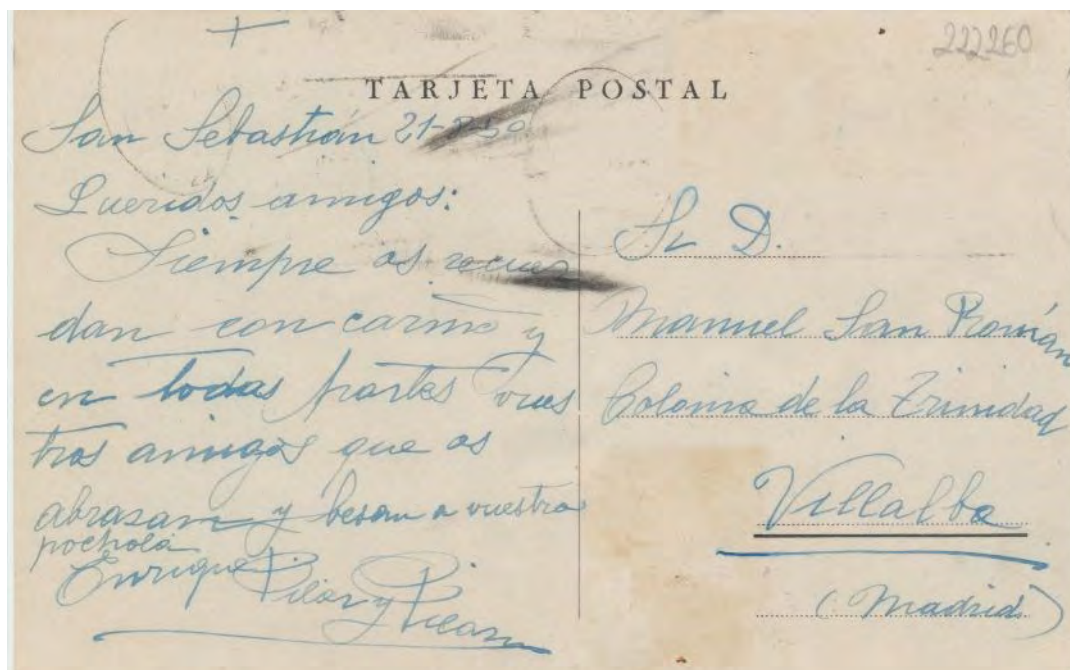 222260
TARJETA POSTAL
San Sebastián 21-8-50
Queridos amigos:
Siempre os recuer
dan con cariño y
en todas partes vues
tros amigos que os
abrazan y besan a vuestra
pochola
Enrique Pilar y Pilar
Sr D.
Manuel San Román
Colonia de la Trinidad
Villalba
(Madrid)